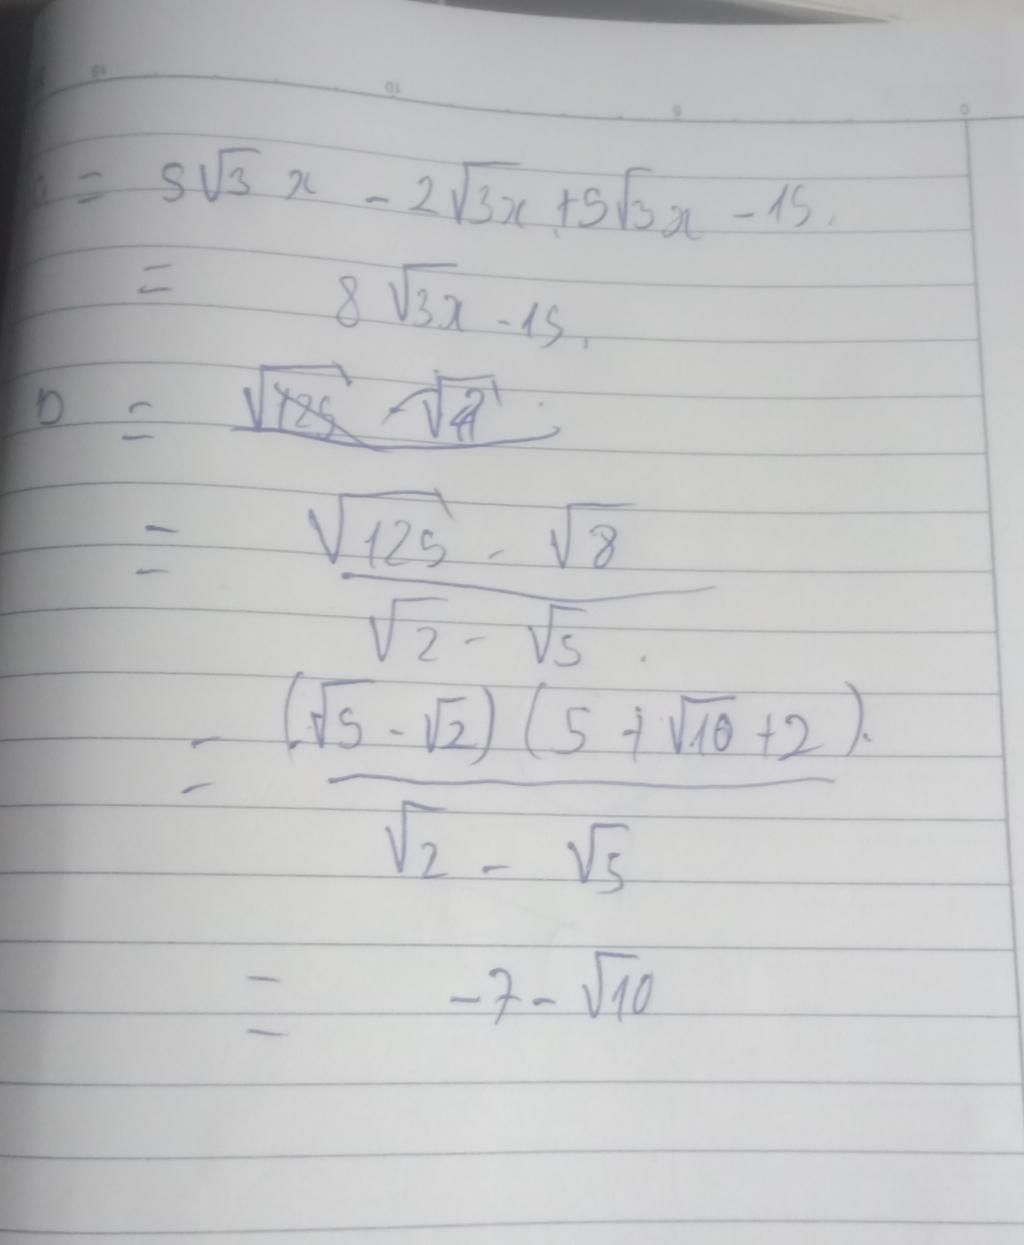 = 5√3x - 2√3x + 5√3x - 15.
= 8√3x - 15.
D =
= (√125 - √8) / (√2 - √5).
= (√5 - √2)(5 + √10 + 2). / (√2 - √5)
= -7 - √10